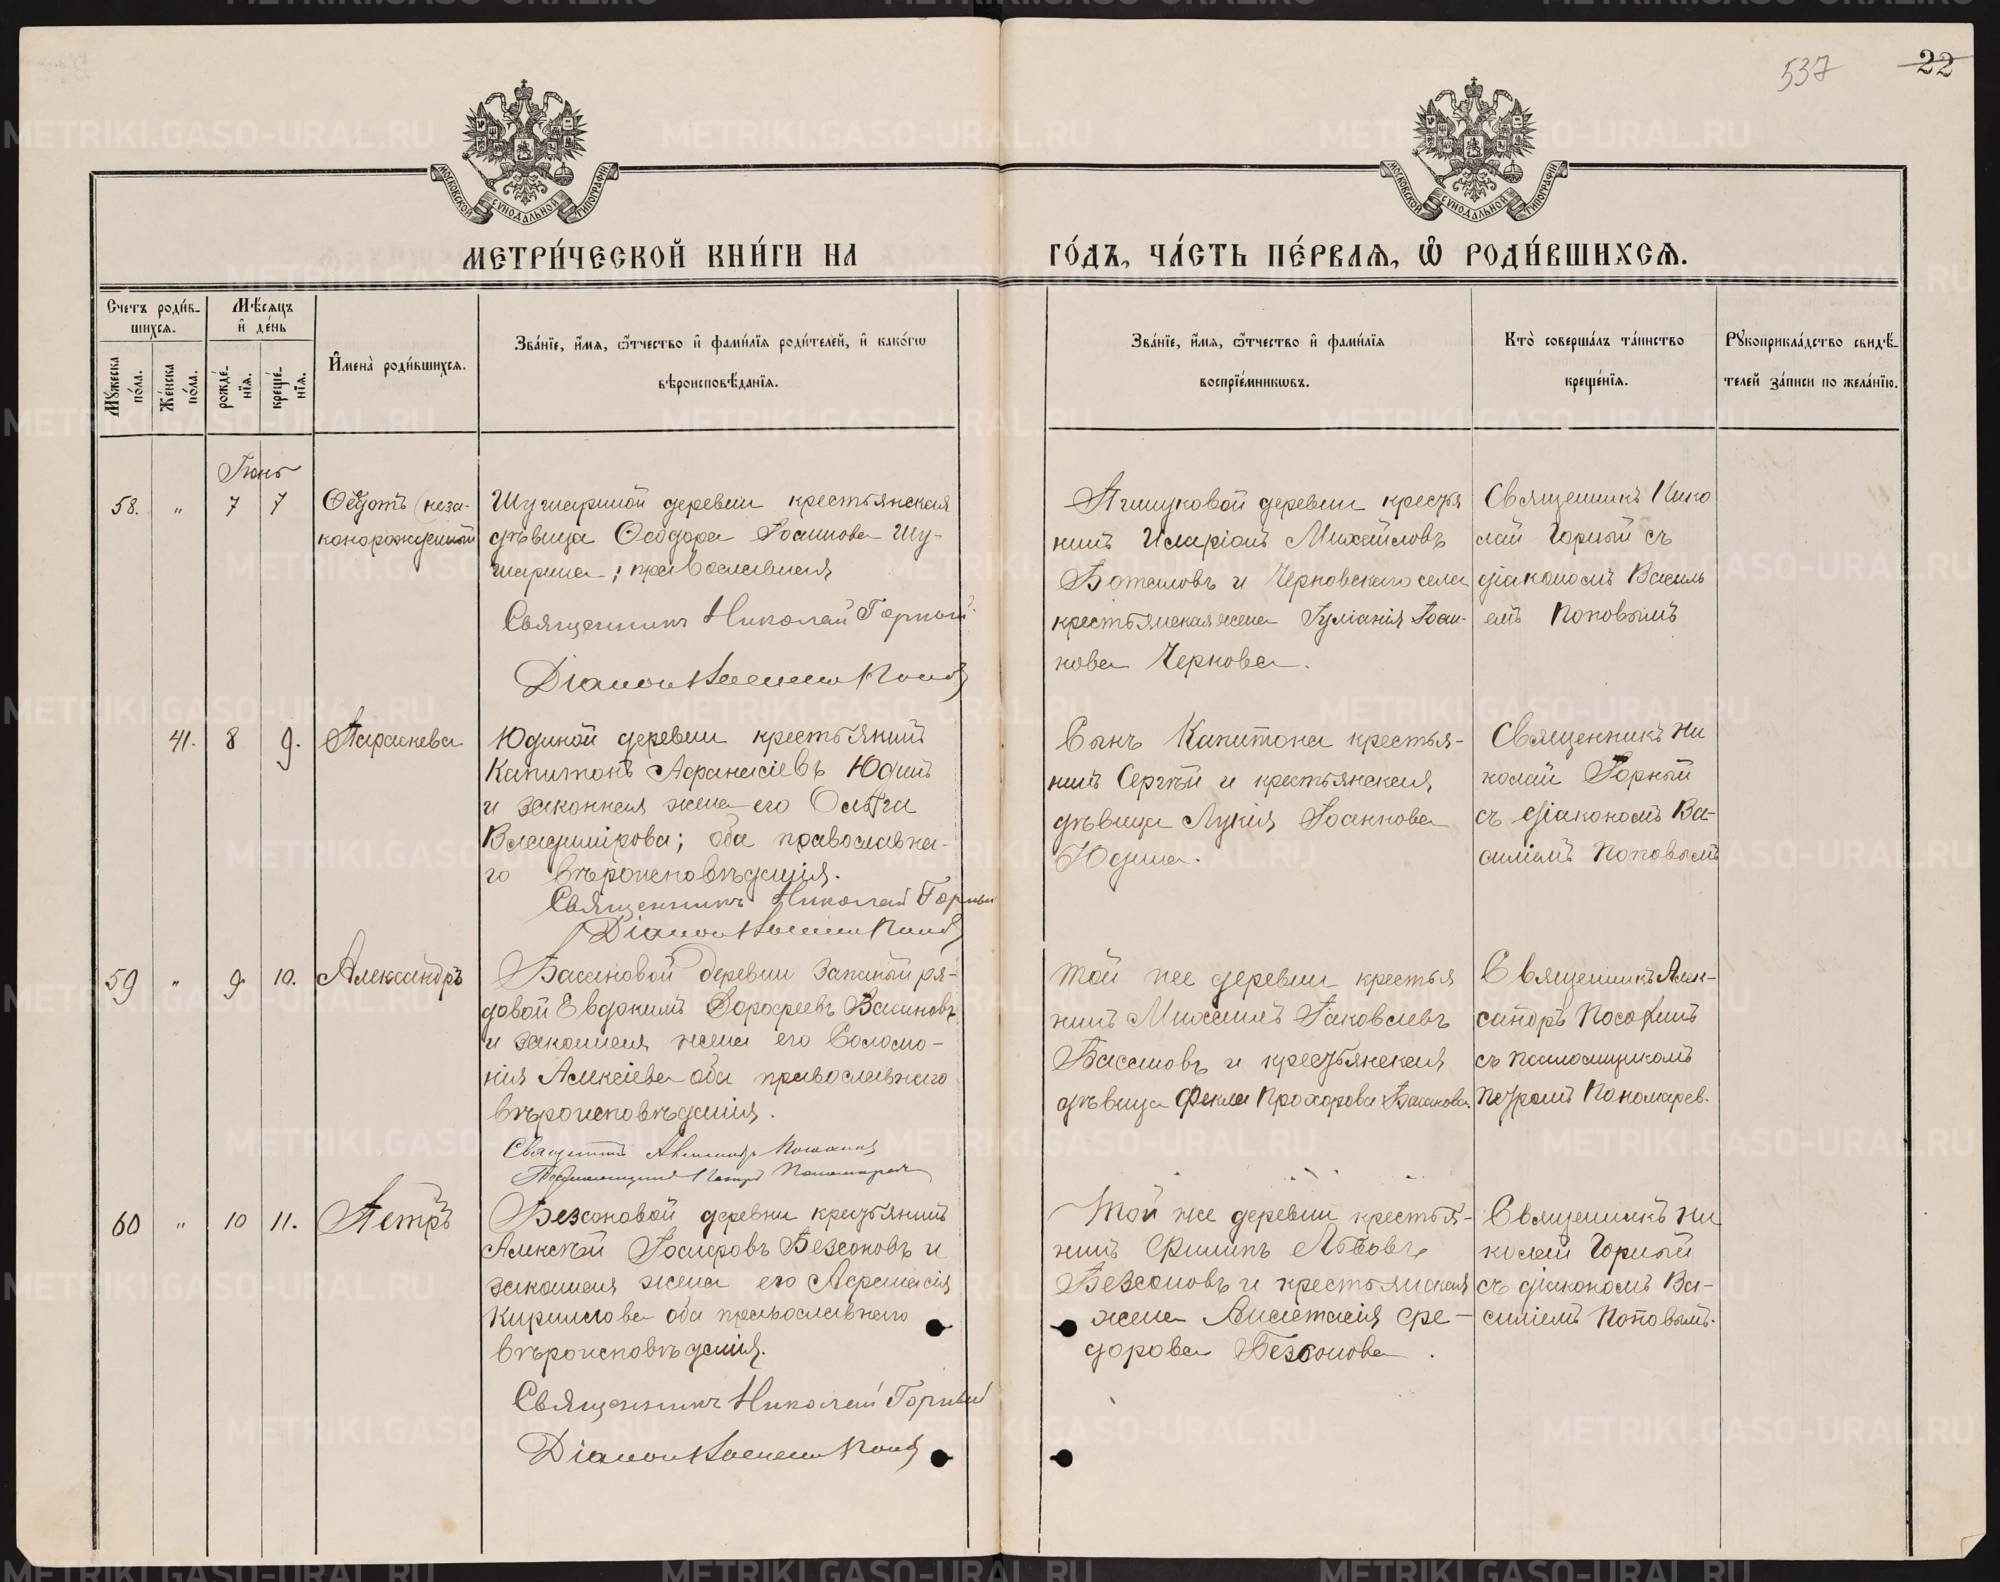 537 22
МОСКОВСКОЙ СУНОДАЛЬНОЙ ТИПОГРАФІИ
МОСКОВСКОЙ СУНОДАЛЬНОЙ ТИПОГРАФІИ
МЕТРИ́ЧЕСКОЙ КНИ́ГИ НА ГО́ДЪ, ЧА́СТЬ ПЕ́РВАѦ, Ѡ҆ РОДИ́ВШИХСѦ.
Счетъ роди́в-
шихсѧ.
Мꙋ́жеска по́ла.
Же́нска по́ла.
Мѣ́сѧцъ
и҆ де́нь
рожде́-нїѧ.
креще́-нїѧ.
И҆мена̀ роди́вшихсѧ.
Зва́нїе, и҆́мѧ, ѻ҆́тчество и҆ фами́лїѧ роди́телей, и҆ како́гѡ
вѣроисповѣ́данїѧ.
Зва́нїе, и҆́мѧ, ѻ҆́тчество и҆ фами́лїѧ
воспрїе́мникѡвъ.
Кто̀ соверша́лъ та́инство
креще́нїѧ.
Рꙋкоприкла́дство свидѣ́-
телей за́писи по жела́нїю.
Іюнь
58. „ 7 7
Ѳедотъ (неза-
конорожденный
деревни крестьянская
дѣвица Ѳеодора Іоаннова Шу-
православная
Священникъ Николай Горный
Діаконъ Василій Поповъ
деревни крестья
нинъ Иларіонъ Михайловъ
и Черновскаго села
крестьянская жена Іуліанія Іоан-
нова Чернова.
Священникъ Нико
лай Горный съ
діакономъ Василь
емъ Поповымъ
41. 8 9. Параскева
Юдиной деревни крестьянинъ
Капитонъ Аѳанасіевъ Юдинъ
и законная жена его Ольга
Владимірова; оба православна-
го вѣроисповѣданія.
Священникъ Николай Горный
Діаконъ Василій Поповъ
Сынъ Капитона крестья-
нинъ Сергѣй и крестьянская
дѣвица Лукія Іоаннова
Юдина.
Священникъ Ни
колай Горный
съ діакономъ Ва-
силіемъ Поповымъ
59 „ 9 10. Александръ
Басановой деревни запасный ря-
довой Евдокимъ Дороѳеевъ Басановъ
и законная жена его Соломо-
нія Алексіева оба православнаго
вѣроисповѣданія.
Священникъ Александръ
Псаломщикъ Петръ Пономаревъ
Той же деревни крестья
нинъ Михаилъ Іаковлевъ
Басановъ и крестьянская
дѣвица Ѳекла Прохорова Басанова.
Священникъ Алек-
сандръ
съ псаломщикомъ
Петромъ Пономарев.
60 „ 10 11. Петръ
Безсоновой деревни крестьянинъ
Алексѣй Іосифовъ Безсоновъ и
законная жена его Аѳанасія
Кириллова оба православнаго
вѣроисповѣданія.
Священникъ Николай Горный
Діаконъ Василій Поповъ
Той же деревни крестья-
нинъ Филипъ Львовъ
Безсоновъ и крестьянская
жена Анастасія Ѳео-
дорова Безсонова.
Священникъ Ни
колай Горный
съ діакономъ Ва-
силіемъ Поповымъ.
METRIKI.GASO-URAL.RU